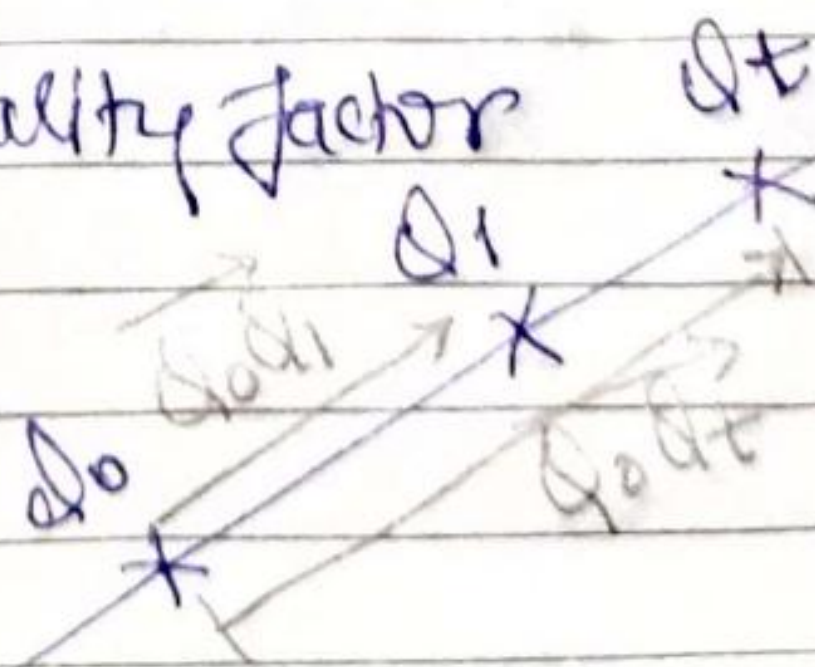 ality factor
Qt
Q1
Q0Q1
Q0
Q0Qt